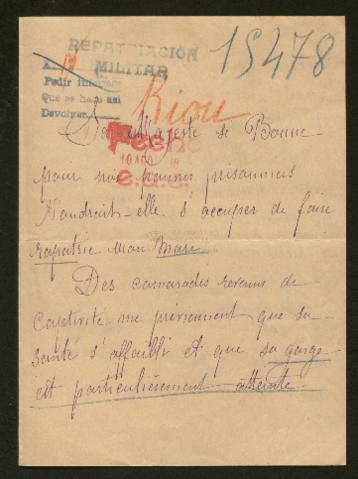 REPATRIACIÓN
MILITAR
15478
Pedir informes
Que se haga así
Devolver
Riou
Fecho
10 AGO 18
Sa Majesté si Bonne
pour nos pauvres prisonniers
Voudrait-elle s'occuper de faire
rapatrié mon Mari
Des camarades revenus de
Captivité me préviennent que sa
santé s'affaibli et que sa gorge
est particulièrement atteinte